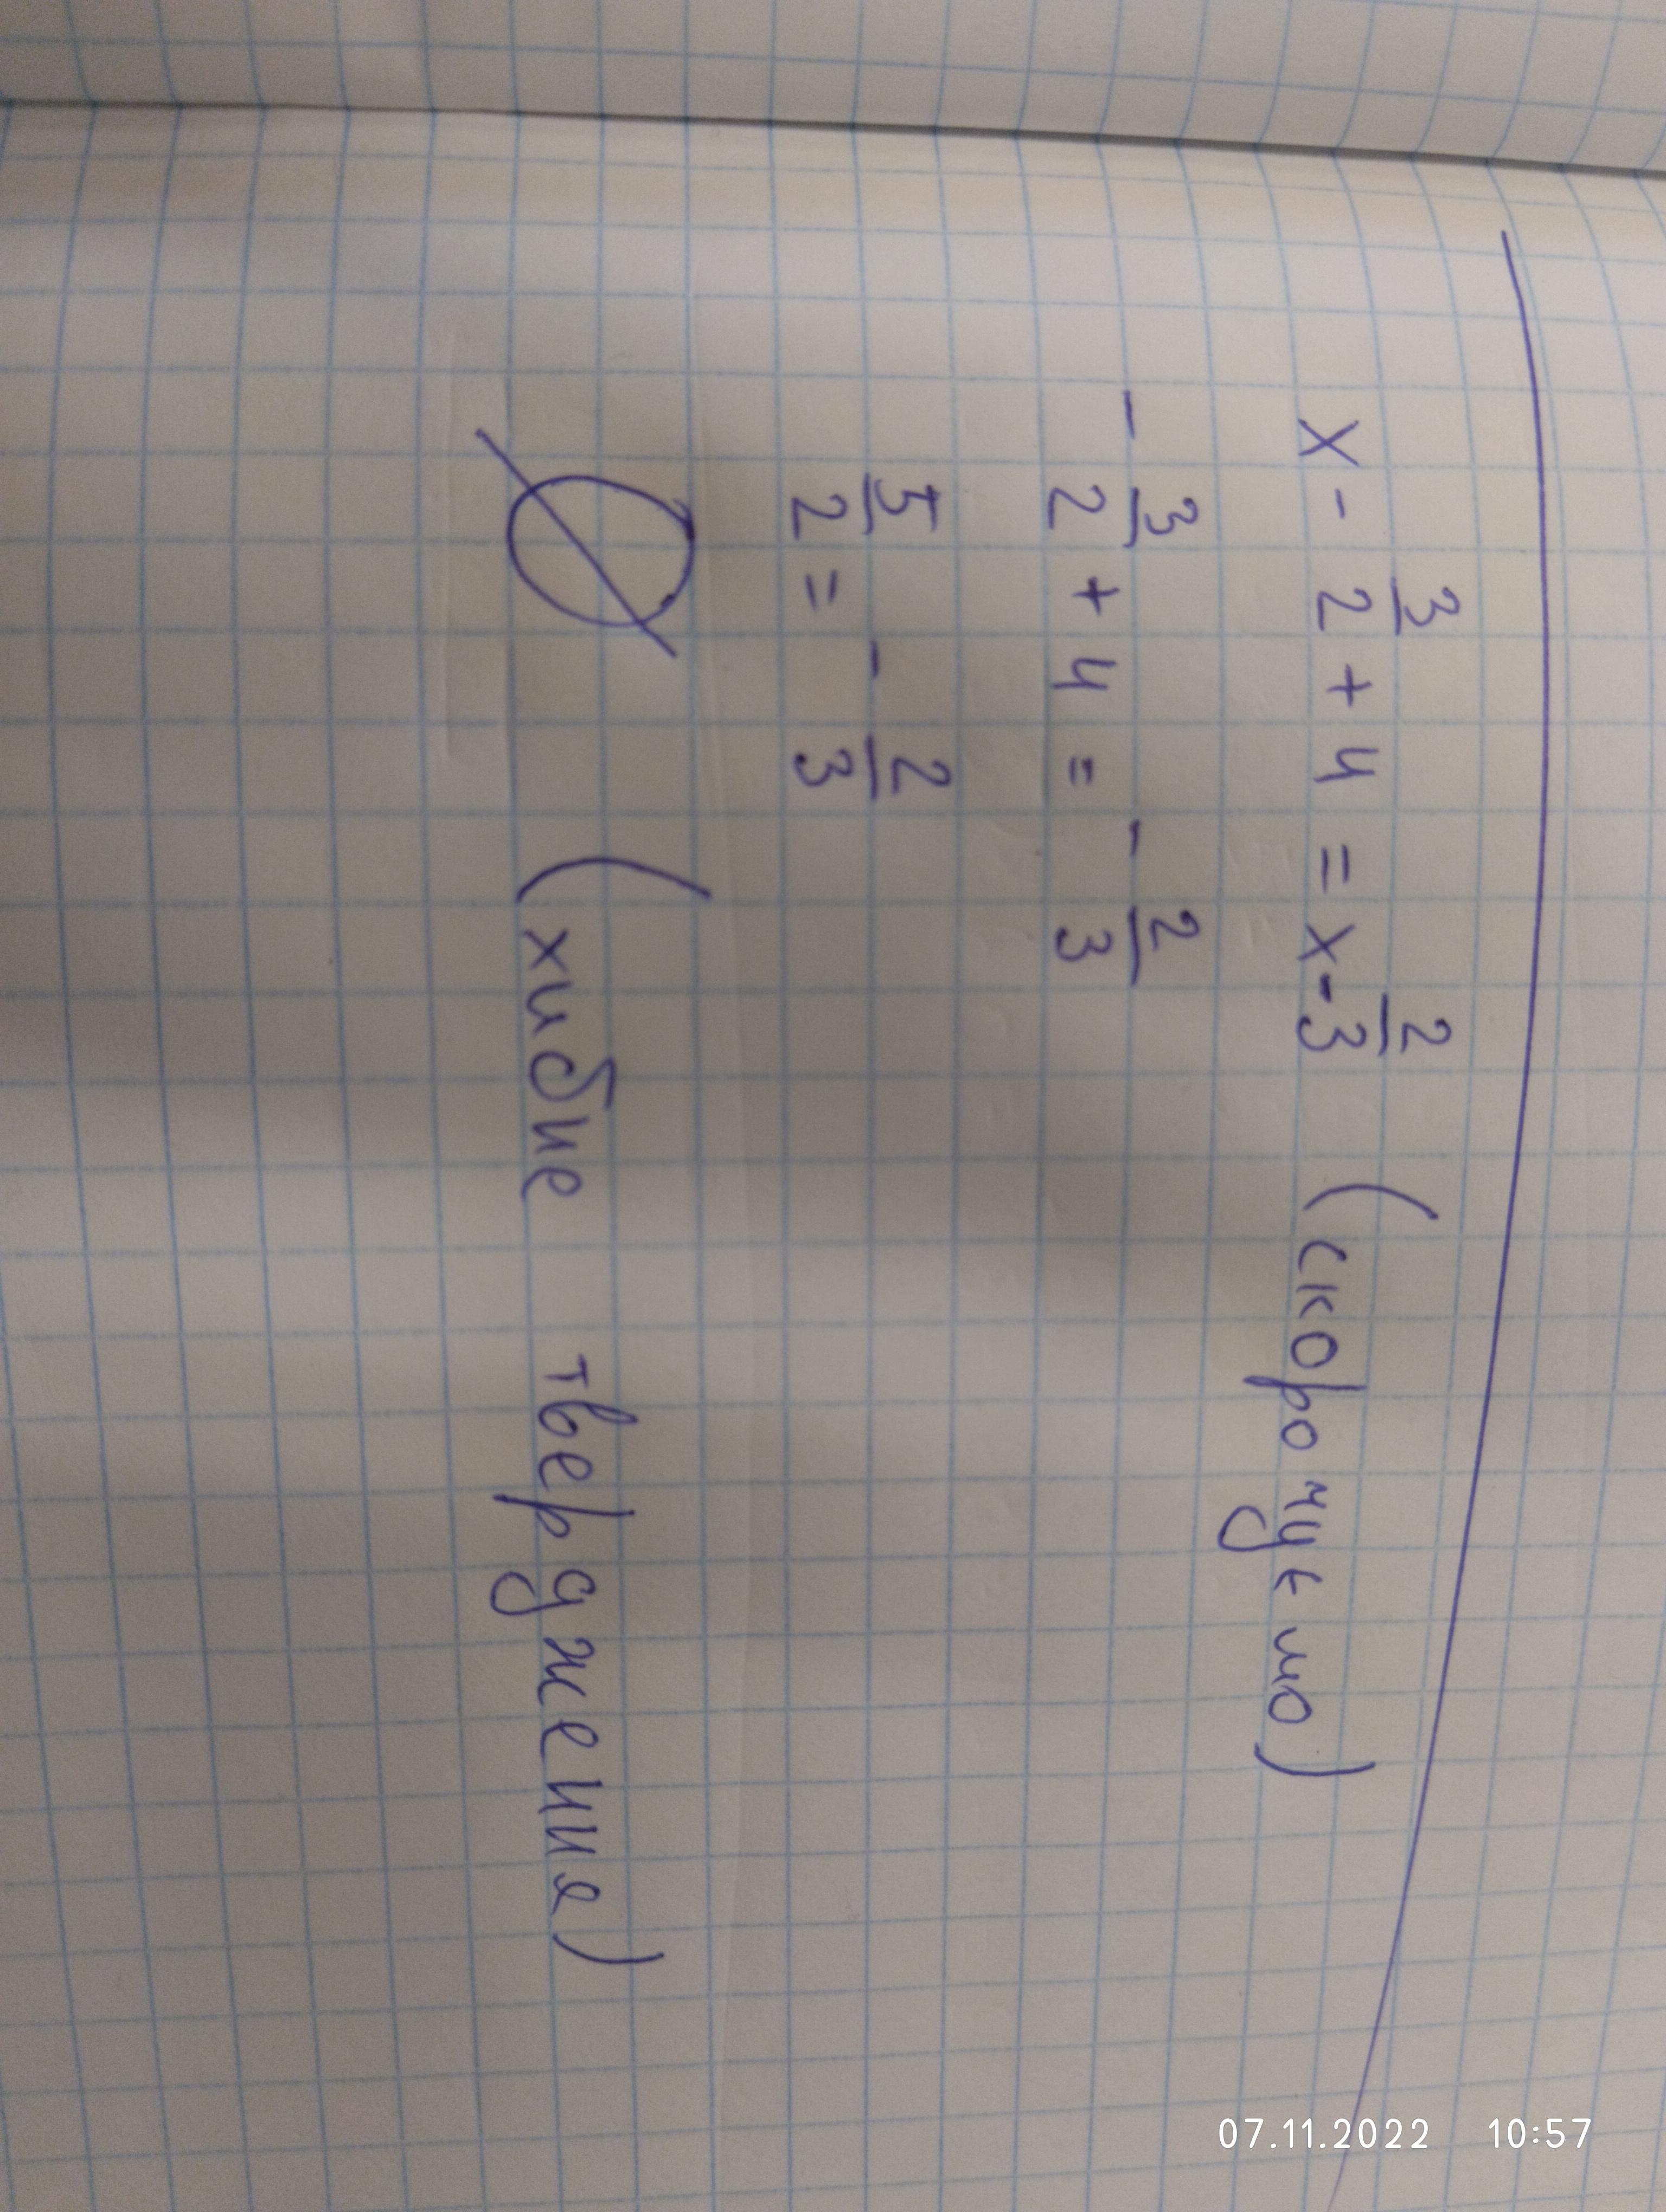 x - 3/2 + 4 = x - 2/3 (скорочуємо)
- 3/2 + 4 = - 2/3
5/2 = - 2/3
∅ (хибне твердження)
07.11.2022 10:57